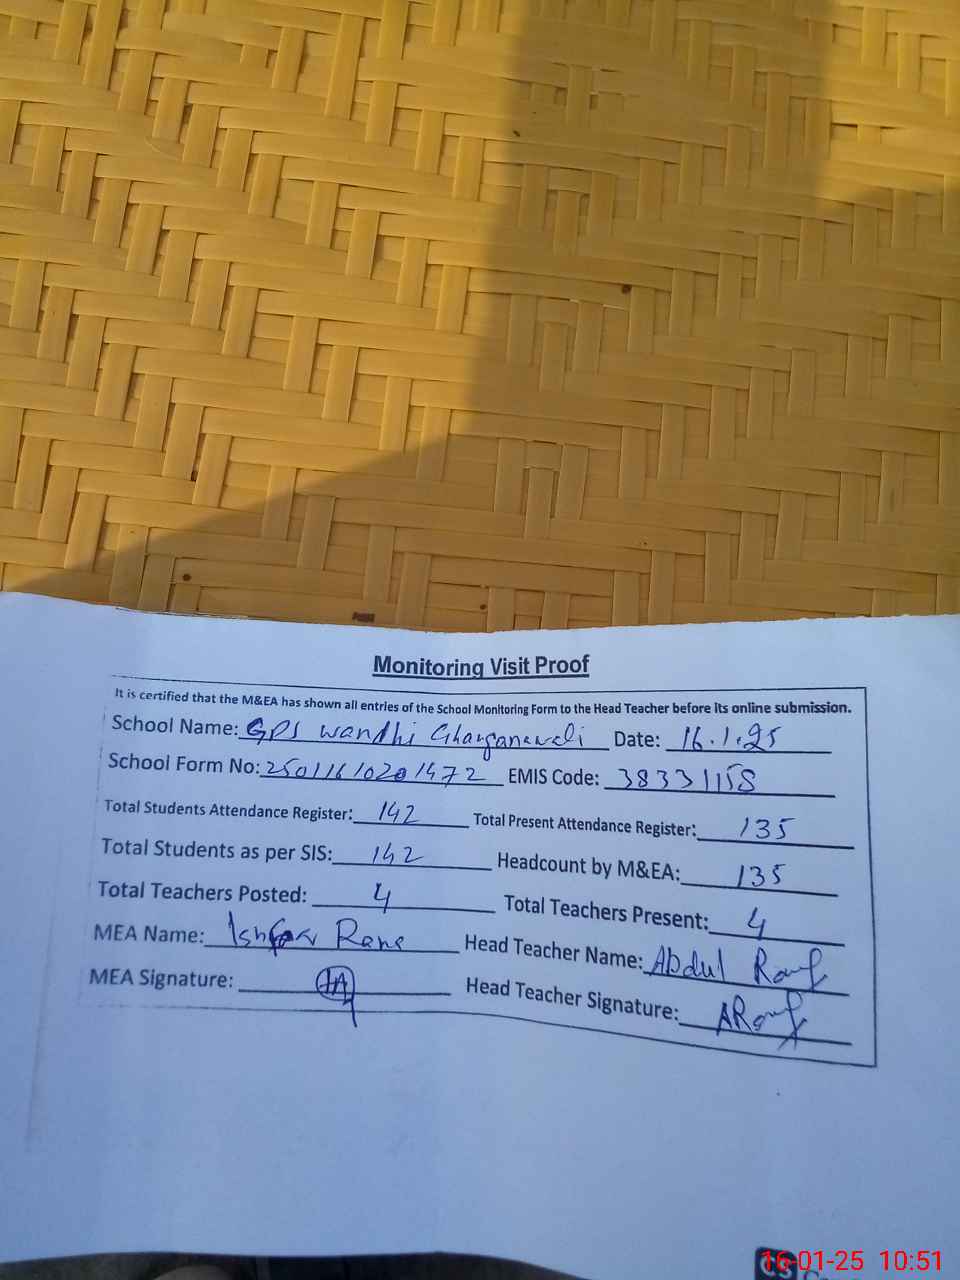 Monitoring Visit Proof
It is certified that the M&EA has shown all entries of the School Monitoring Form to the Head Teacher before its online submission.
School Name: GPS wandhi Ghanganwali Date: 16.1.25
School Form No: 25011610201472 EMIS Code: 38331158
Total Students Attendance Register: 142 Total Present Attendance Register: 135
Total Students as per SIS: 142 Headcount by M&EA: 135
Total Teachers Posted: 4 Total Teachers Present: 4
MEA Name: Rana Head Teacher Name: Abdul Rauf
MEA Signature: IA Head Teacher Signature: ARauf
CS
16-01-25 10:51